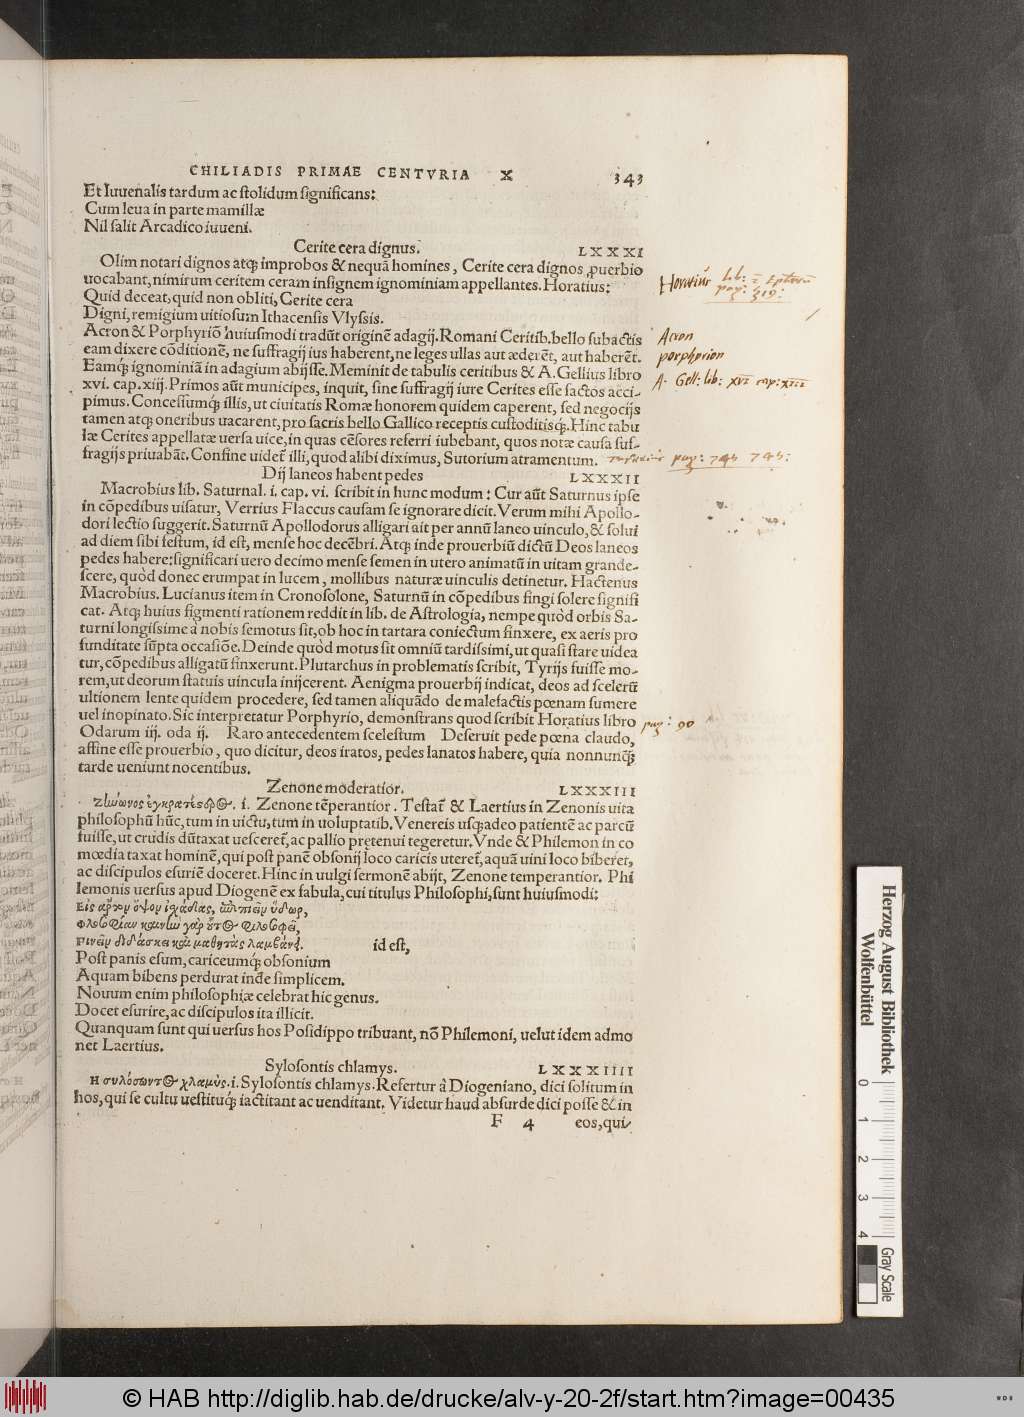 CHILIADIS PRIMAE CENTVRIA X 343
Et Iuuenalis tardum ac stolidum significans:
Cum leua in parte mamillæ
Nil salit Arcadico iuueni.
Cerite cera dignus. LXXXI
Olim notari dignos atq; improbos & nequā homines, Cerite cera dignos ꝓuerbio
uocabant, nimirum ceritem ceram insignem ignominiam appellantes. Horatius:
Quid deceat, quid non obliti, Cerite cera
Digni, remigium uitiosum Ithacensis Vlyssis.
Acron & Porphyriō huiusmodi tradūt originē adagij. Romani Ceritib. bello subactis
eam dixere cōditionē, ne suffragij ius haberent, ne leges ullas aut æderēt, aut haberēt.
Eamq́; ignominiā in adagium abijsse. Meminit de tabulis ceritibus & A. Gellius libro
xvi. cap. xiij. Primos aūt municipes, inquit, sine suffragij iure Cerites esse factos acci-
pimus. Concessumq́; illis, ut ciuitatis Romæ honorem quidem caperent, sed negocijs
tamen atq; oneribus uacarent, pro sacris bello Gallico receptis custoditisq́;. Hinc tabu
læ Cerites appellatæ uersa uice, in quas cēsores referri iubebant, quos notæ causa suf-
fragijs priuabāt. Confine uidet̄ illi, quod alibi diximus, Sutorium atramentum.
Dij laneos habent pedes LXXXII
Macrobius lib. Saturnal. i. cap. vi. scribit in hunc modum: Cur aūt Saturnus ipse
in cōpedibus uisatur, Verrius Flaccus causam se ignorare dicit. Verum mihi Apollo-
dori lectio suggerit. Saturnū Apollodorus alligari ait per annū laneo uinculo, & solui
ad diem sibi festum, id est, mense hoc decēbri. Atq; inde prouerbiū dictū Deos laneos
pedes habere: significari uero decimo mense semen in utero animatū in uitam grande-
scere, quòd donec erumpat in lucem, mollibus naturæ uinculis detinetur. Hactenus
Macrobius. Lucianus item in Cronosolone, Saturnū in cōpedibus fingi solere signifi
cat. Atq; huius figmenti rationem reddit in lib. de Astrologia, nempe quòd orbis Sa-
turni longissime à nobis semotus sit, ob hoc in tartara coniectum finxere, ex aeris pro
funditate sūpta occasiōe. Deinde quòd motus sit omniū tardissimi, ut quasi stare uidea
tur, cōpedibus alligatū finxerunt. Plutarchus in problematis scribit, Tyrijs fuisse mo-
rem, ut deorum statuis uincula inijcerent. Aenigma prouerbij indicat, deos ad scelerū
ultionem lente quidem procedere, sed tamen aliquādo de malefactis pœnam sumere
uel inopinato. Sic interpretatur Porphyrio, demonstrans quod scribit Horatius libro
Odarum iij. oda ij. Raro antecedentem scelestum Deseruit pede pœna claudo,
affine esse prouerbio, quo dicitur, deos iratos, pedes lanatos habere, quia nonnunq̄;
tarde ueniunt nocentibus.
Zenone moderatior. LXXXIII
Ζήνωνος ἐγκρατέστερος. i. Zenone tēperantior. Testat̄ & Laertius in Zenonis uita
philosophū hūc, tum in uictu, tum in uoluptatib. Venereis usq;adeo patientē ac parcū
fuisse, ut crudis dūtaxat uesceret̄, ac pallio prętenui tegeretur. Vnde & Philemon in co
mœdia taxat hominē, qui post panē obsonij loco caricis uteret̄, aquā uini loco biberet,
ac discipulos esuriē doceret. Hinc in uulgi sermonē abijt, Zenone temperantior. Phi
lemonis uersus apud Diogenē ex fabula, cui titulus Philosophi, sunt huiusmodi:
Εἷς ἄρτον ὄψον ἰχάδιας, ἐπιπιεῖν ὕδωρ,
Φιλοσοφίαν καινὴν γὰρ οὗτος φιλοσοφεῖ,
Πεινῆν διδάσκει καὶ μαθητὰς λαμβάνει. id est,
Post panis esum, cariceumq́; obsonium
Aquam bibens perdurat inde simplicem.
Nouum enim philosophiæ celebrat hic genus.
Docet esurire, ac discipulos ita illicit.
Quanquam sunt qui uersus hos Posidippo tribuant, nō Philemoni, uelut idem admo
net Laertius.
Sylosontis chlamys. LXXXIIII
Η συλόσωντος χλαμύς. i. Sylosontis chlamys. Refertur à Diogeniano, dici solitum in
hos, qui se cultu uestituq́; iactitant ac uenditant. Videtur haud absurde dici posse & in
F 4 eos, qui
Horatius lib: ī Epistolarū
pag: 319:
Acron
porphyrion
A. Gell: lib: XVI cap: XIII
pag: 743 743:
pag: 90
Herzog August Bibliothek
Wolfenbüttel
0 1 2 3 4
Gray Scale
© HAB http://diglib.hab.de/drucke/alv-y-20-2f/start.htm?image=00435
WDB